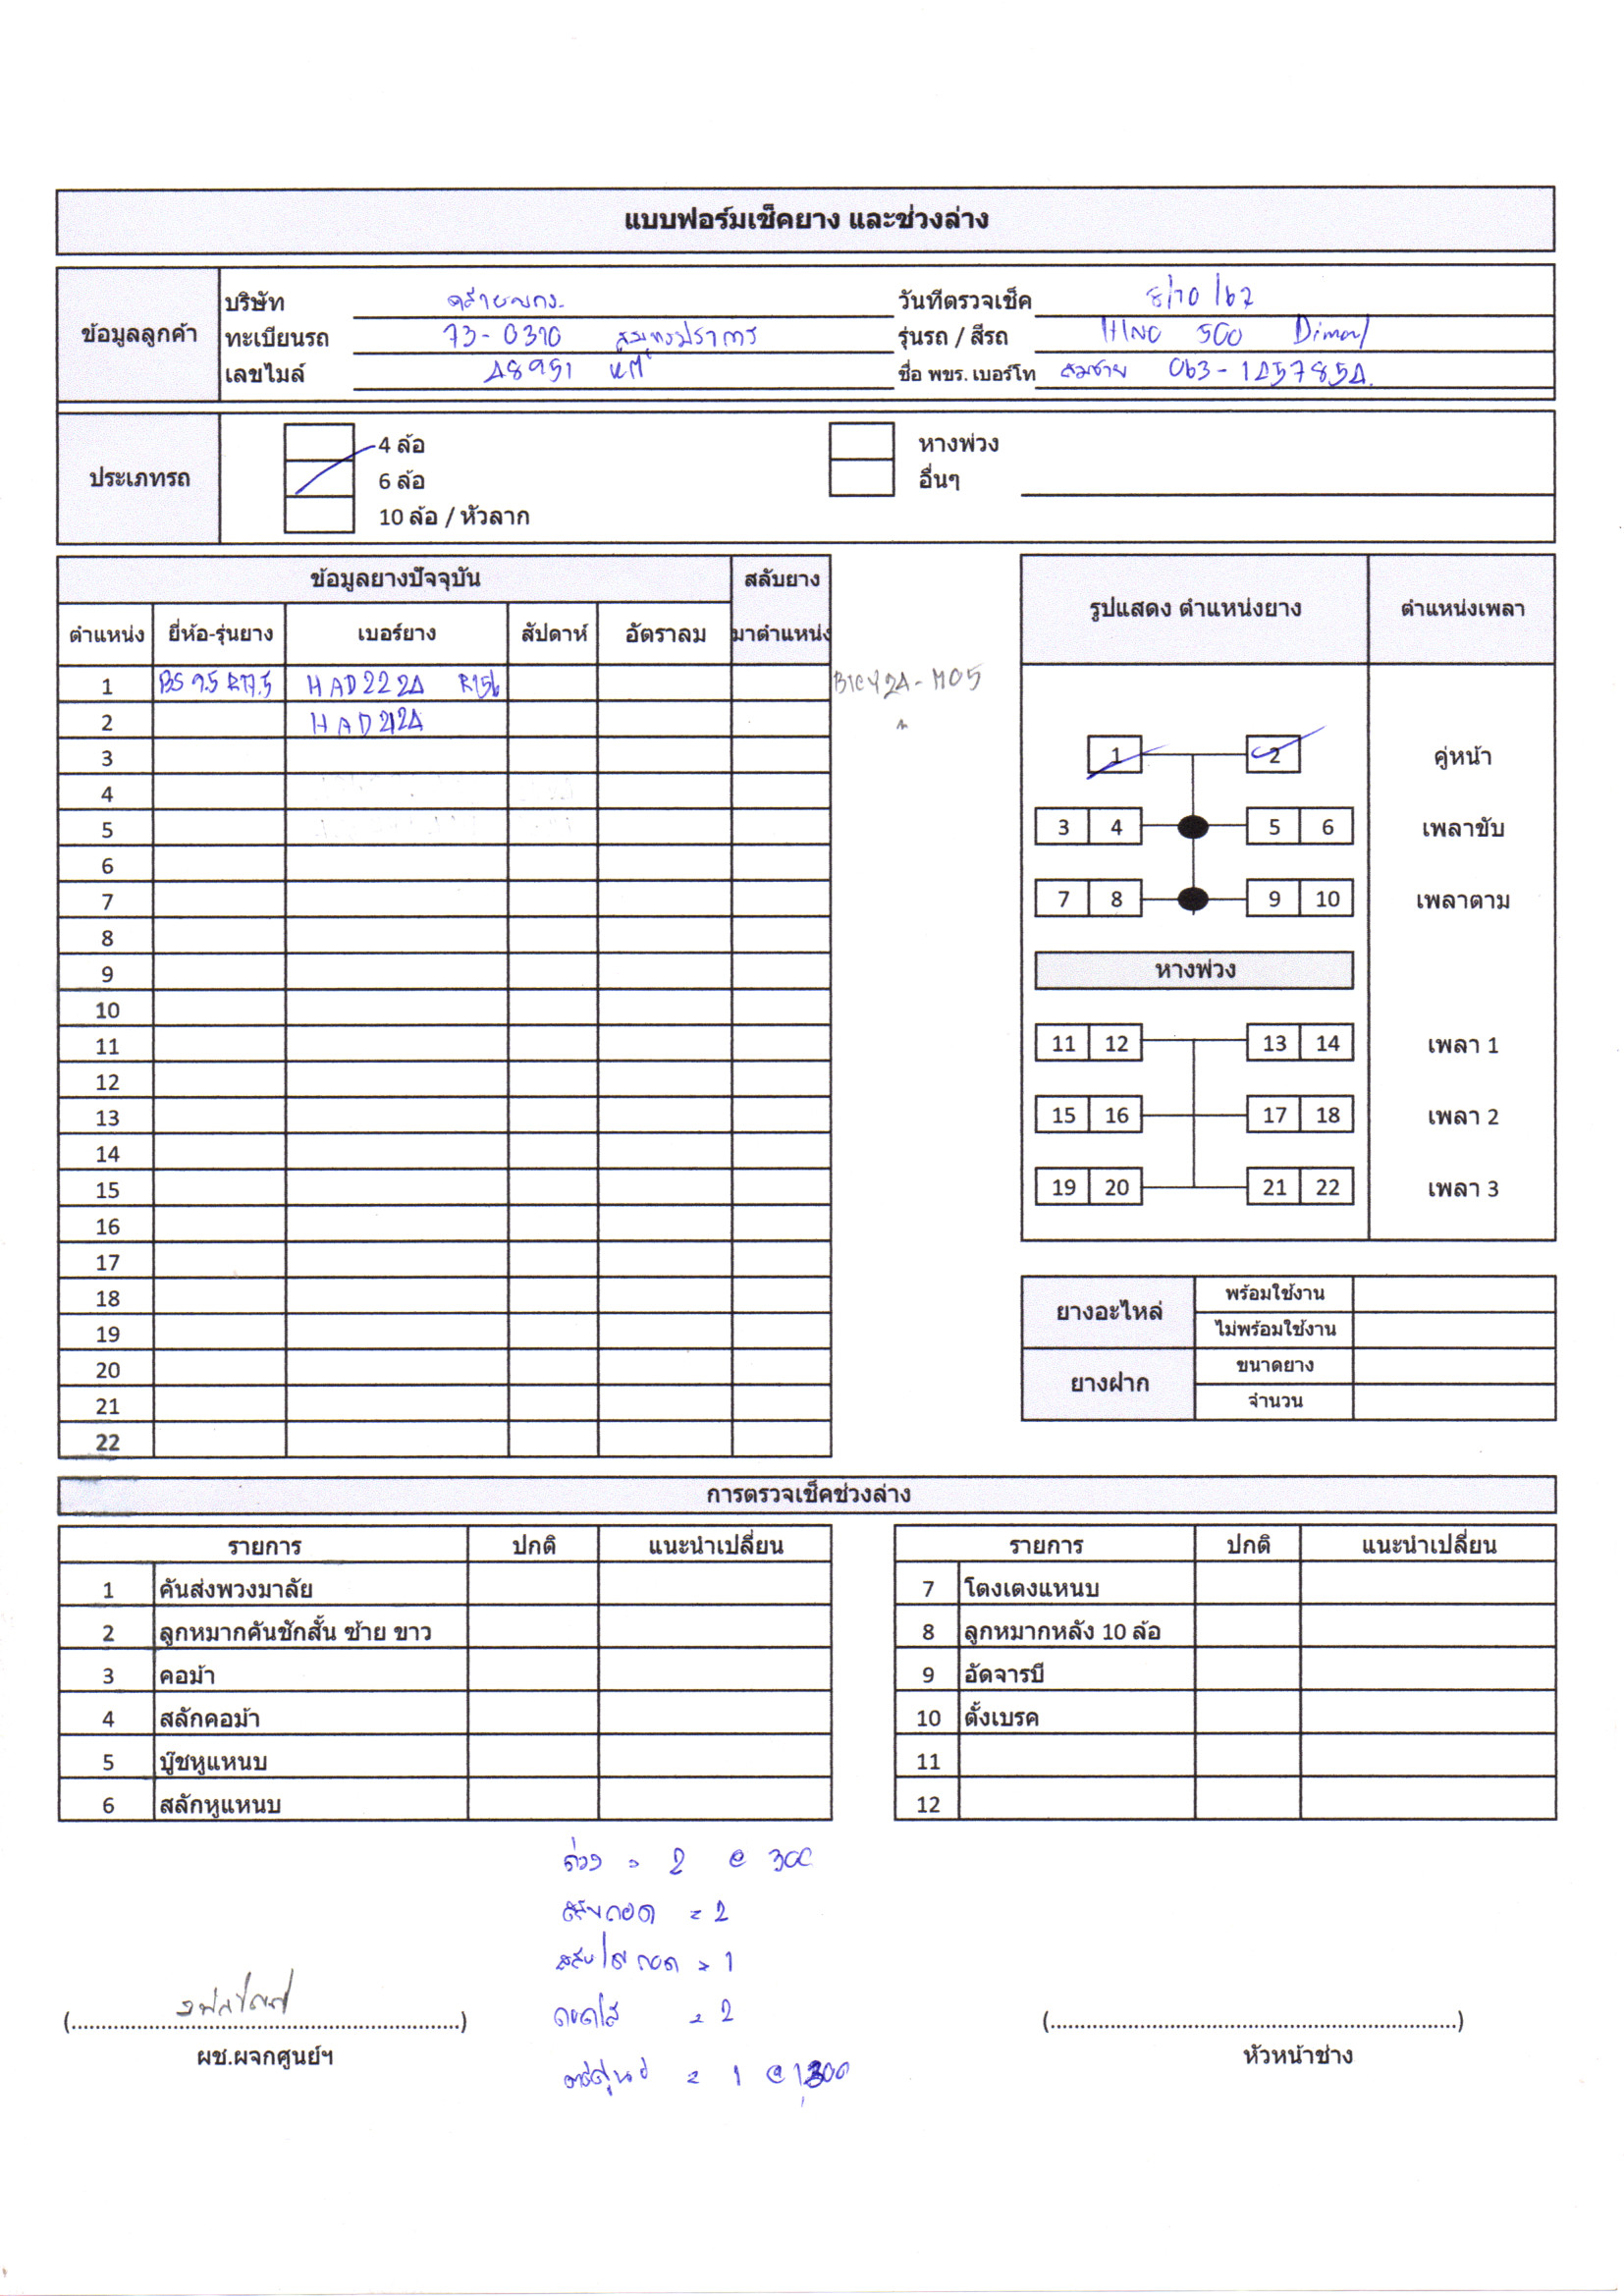 แบบฟอร์มเช็คยาง และช่วงล่าง
ข้อมูลลูกค้า
บริษัท
วันที่ตรวจเช็ค 8/10/67
ทะเบียนรถ 73-0310 สมุทรปราการ
รุ่นรถ / สีรถ HINO 500
เลขไมล์ 48951 KM
ชื่อ พขร. เบอร์โท สมชาย 063-1457854
ประเภทรถ
4 ล้อ หางพ่วง
6 ล้อ อื่นๆ
10 ล้อ / หัวลาก
ข้อมูลยางปัจจุบัน สลับยาง
ตำแหน่ง ยี่ห้อ-รุ่นยาง เบอร์ยาง สัปดาห์ อัตราลม มาตำแหน่ง
1 BS 9.5 R17.5 HAD2224 R156
2 HAD2124
3
4
5
6
7
8
9
10
11
12
13
14
15
16
17
18
19
20
21
22
รูปแสดง ตำแหน่งยาง ตำแหน่งเพลา
1 2 คู่หน้า
3 4 5 6 เพลาขับ
7 8 9 10 เพลาตาม
หางพ่วง
11 12 13 14 เพลา 1
15 16 17 18 เพลา 2
19 20 21 22 เพลา 3
ยางอะไหล่ พร้อมใช้งาน
ไม่พร้อมใช้งาน
ยางฝาก ขนาดยาง
จำนวน
การตรวจเช็คช่วงล่าง
รายการ ปกติ แนะนำเปลี่ยน
1 คันส่งพวงมาลัย
2 ลูกหมากคันชักสั้น ซ้าย ขาว
3 คอม้า
4 สลักคอม้า
5 บู๊ชหูแหนบ
6 สลักหูแหนบ
รายการ ปกติ แนะนำเปลี่ยน
7 โตงเตงแหนบ
8 ลูกหมากหลัง 10 ล้อ
9 อัดจารบี
10 ตั้งเบรค
11
12
ถ่วง = 2 @ 300
สลับถอด = 2
สลับไม่ถอด = 1
ถอดใส่ = 2
ตั้งศูนย์ = 1 @ 1300
(..........)
ผช.ผจกศูนย์ฯ
(..........)
หัวหน้าช่าง